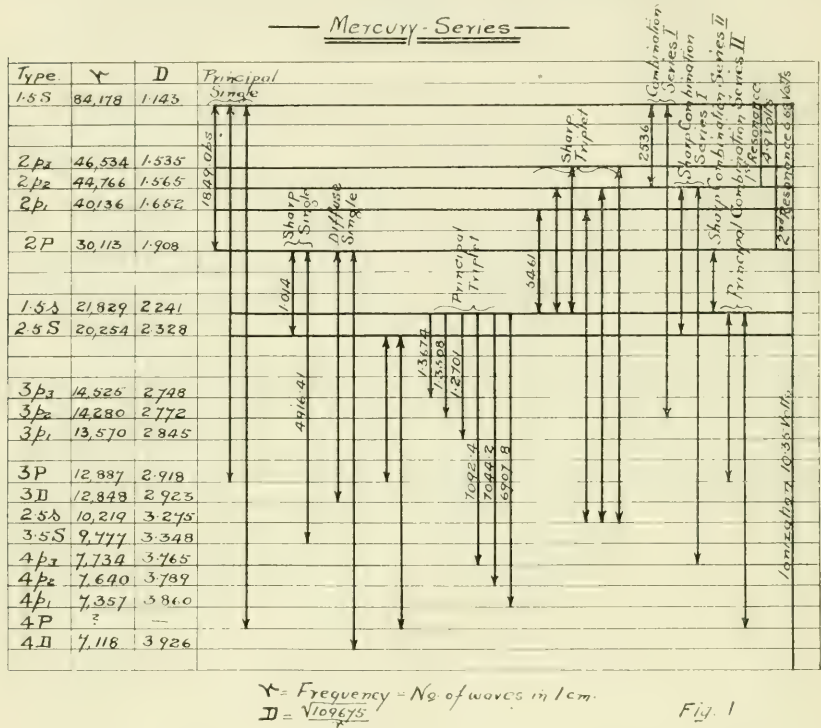 Mercury-Series
Type. γ D
1·5S 84,178 1·143
2p₃ 46,534 1·535
2p₂ 44,766 1·565
2p₁ 40,136 1·652
2P 30,113 1·908
1·5s 21,829 2 241
2·5S 20,254 2·328
3p₃ 14,525 2·748
3p₂ 14,280 2·772
3p₁ 13,570 2 845
3P 12,887 2·918
3D 12,848 2 923
2·5s 10,219 3·275
3·5S 9,777 3·348
4p₃ 7,734 3·765
4p₂ 7,640 3·789
4p₁ 7,357 3 860
4P ? —
4D 7,118 3 926
Principal
Single
1849 Obs
Sharp
Single
Diffuse
Single
1014
4916·41
Principal
Triplet
1·3674
1·3508
1·2701
7092·4
7044·2
6907 8
Sharp
Triplet
5461
Combination
Series I
2536
Sharp Combination
Series I
Sharp Combination Series II
Principal Combination Series II
1st Resonance
4·9 Volts
2nd Resonance 6·68 Volts
Ionization 10·35 Volts
γ = Frequency = No. of waves in 1 cm.
D = √109675
γ
Fig. 1